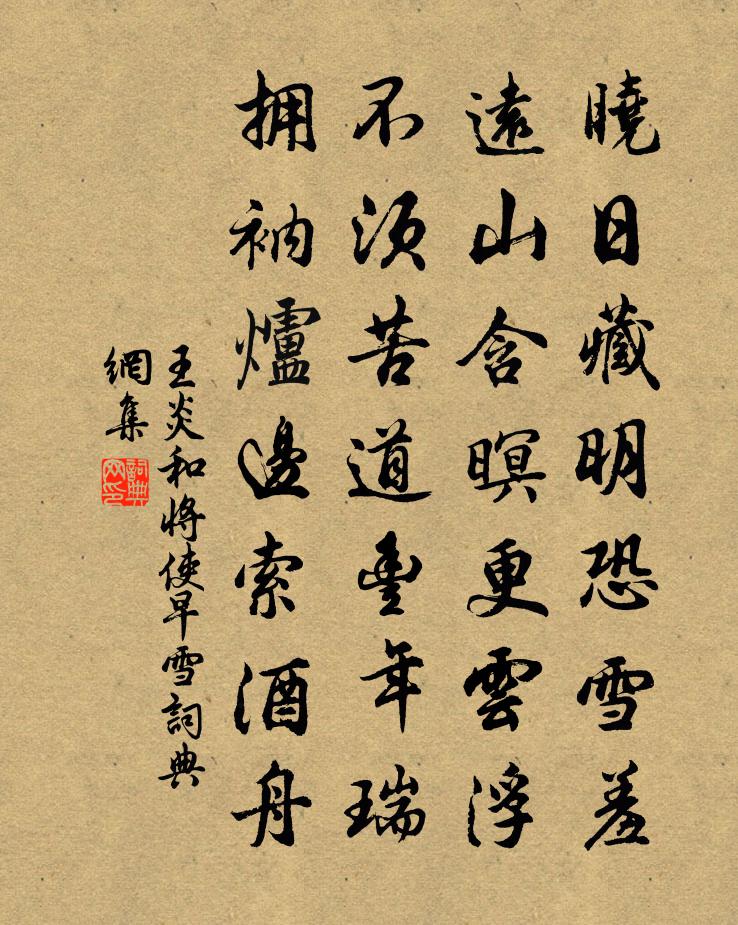 曉日藏明恐雪羞
遠山含暝更雲浮
不須苦道豐年瑞
拥衲爐邊索酒舟
王炎和將使早雪詞典
網集
詞典網印